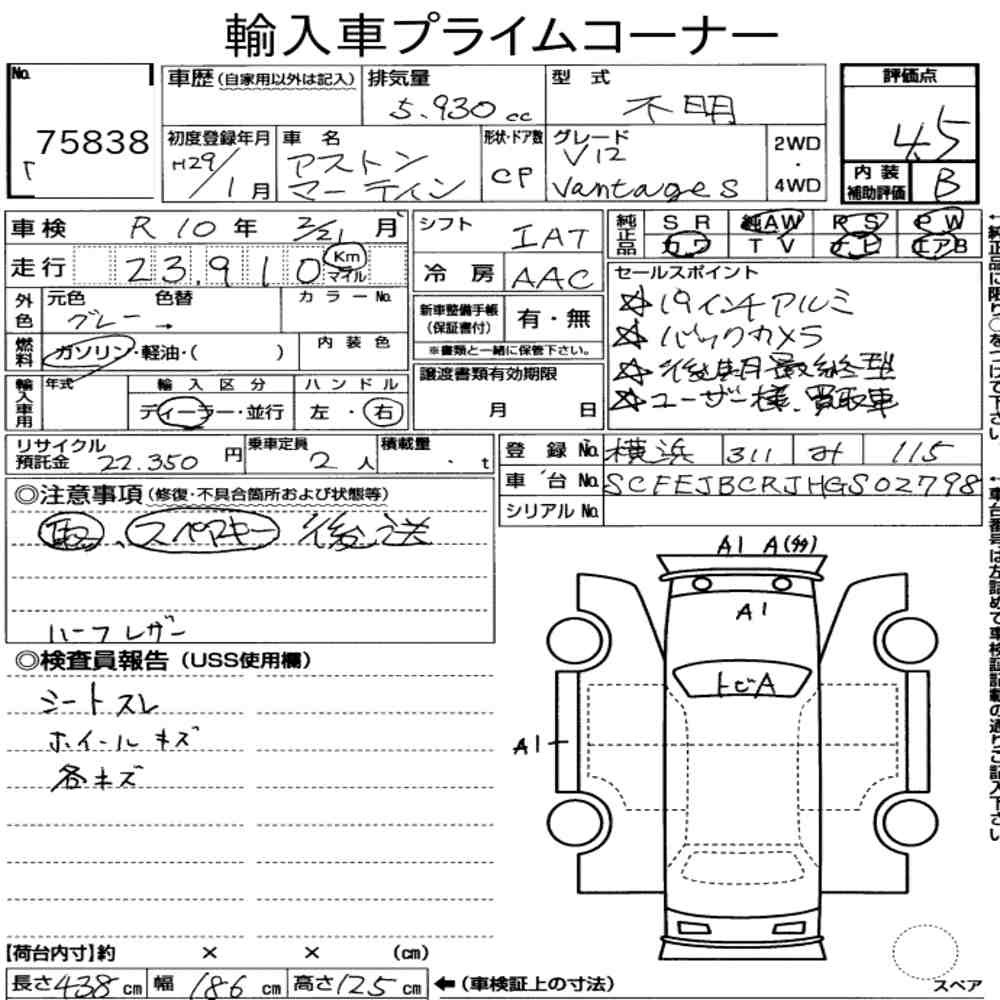 輸入車プライムコーナー
No. 75838
車歴(自家用以外は記入)
排気量 5.930 cc
型式 不明
評価点 4.5
初度登録年月 H29/1月
車名 アストンマーティン
形状・ドア数 CP
グレード V12 Vantage S
2WD・4WD
内装補助評価 B
車検 R10年 月
シフト IAT
純正品 SR 純AW PS PW
カワ TV ナビ エアB
走行 23,910 Km マイル
冷房 AAC
セールスポイント
☆19インチアルミ
☆バックカメラ
☆後期最終型
☆ユーザー様、買取車
外色 元色 グレー 色替 → カラーNo.
新車整備手帳(保証書付) 有・無
※書類と一緒に保管下さい。
燃料 ガソリン・軽油・( ) 内装色
譲渡書類有効期限 月 日
輸入車用 年式 輸入区分 ディーラー・並行 ハンドル 左・右
リサイクル預託金 22.350円
乗車定員 2人
積載量 . t
登録No. 横浜 311 み 115
車台No. SCFEJBCRJHGS02798
シリアルNo.
◎注意事項(修復・不具合箇所および状態等)
取、スペアキー 後送
ハーフレザー
◎検査員報告(USS使用欄)
シートスレ
ホイールキズ
各キズ
A1
A1
トビA
A1
【荷台内寸】約 × × (cm)
長さ438cm 幅186cm 高さ125cm ←(車検証上の寸法)
スペア
↑純正品に限り○をつけて下さい。
↑車台番号は左詰めで車検証記載の通りご記入下さい